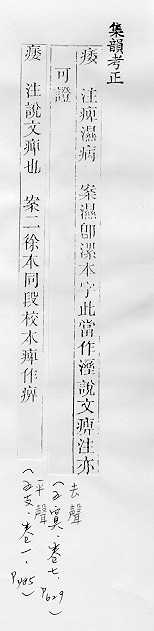 集韻考正
痿　注痺濕病　案濕卽漯本字此當作溼說文痹注亦
可證
去聲
(五寘．卷七．P629)
痿　注說文痺也　案二徐本同段校本痺作痹
平聲
(五支．卷一．P485)